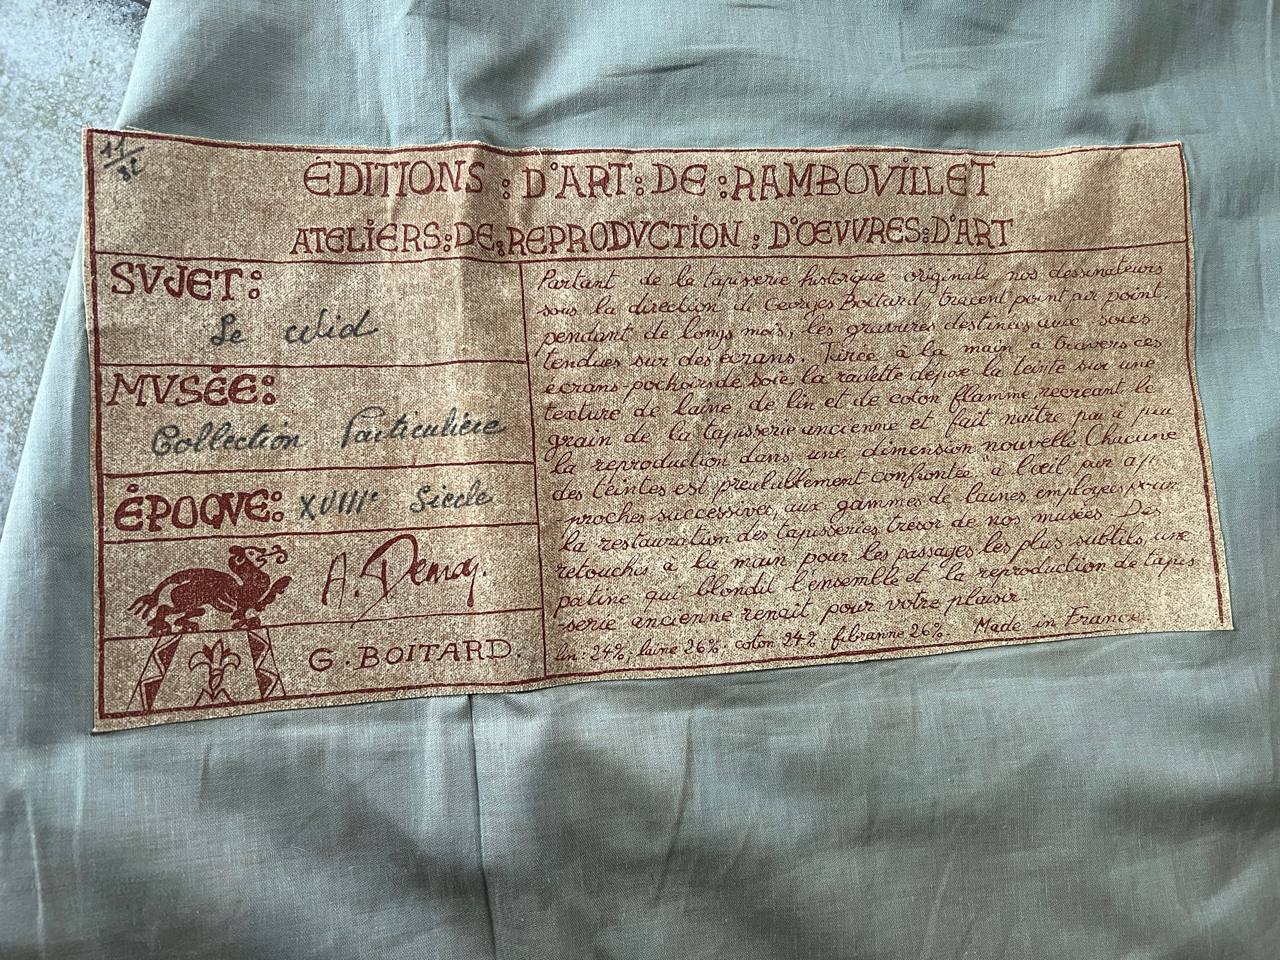 11/32
ÉDITIONS : D'ART : DE : RAMBOVILLET
ATELIERS : DE : REPRODVCTION : D'ŒVVRES : D'ART
SVJET :
Le
MVSÉE :
Collection Particulière
ÉPOQVE : XVIIIe Siècle
A. Demoy.
G. BOITARD.
Partant de la tapisserie historique originale nos dessinateurs
sous la direction d Georges Boitard, tracent point par point,
pendant de longs mois, les gravures destinées aux soies
tendues sur des écrans. Tirée à la main à travers ces
écrans-pochoirs de soie, la raclette dépose la teinte sur une
texture de laine de lin et de coton flammé, recréant le
grain de la tapisserie ancienne et fait naître peu à peu
la reproduction dans une dimension nouvelle Chacune
des teintes est préalablement confrontée "à l'œil" par ap-
proches successives, aux gammes de laines employées pour
la restauration des tapisseries trésor de nos musées. Des
retouches à la main pour les passages les plus subtils, une
patine qui blondit l'ensemble et la reproduction de tapis
serie ancienne renait pour votre plaisir.
lin : 24% ; laine 26% ; coton 24% fibranne 26% Made in France